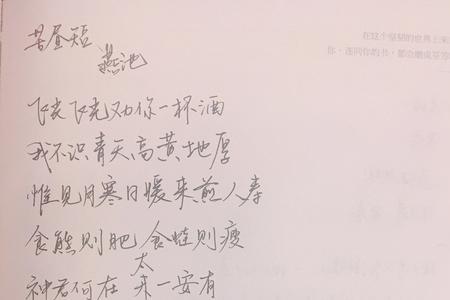 苦昼短
燕池
飞光飞光劝你一杯酒
我不识青天高黄地厚
惟见月寒日暖来煎人寿
食熊则肥 食蛙则瘦
神君何在 太一安有
在这个 的世界上
你，连同你的书，都会